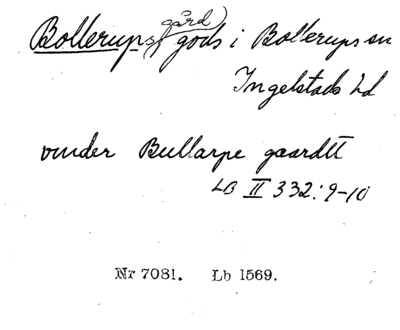 Bollerups (gård) gods i Bollerups sn
Ingelstads hd
vnder Bullarpe gaardtt
LB II 332:9-10
Nr 7081. Lb 1569.